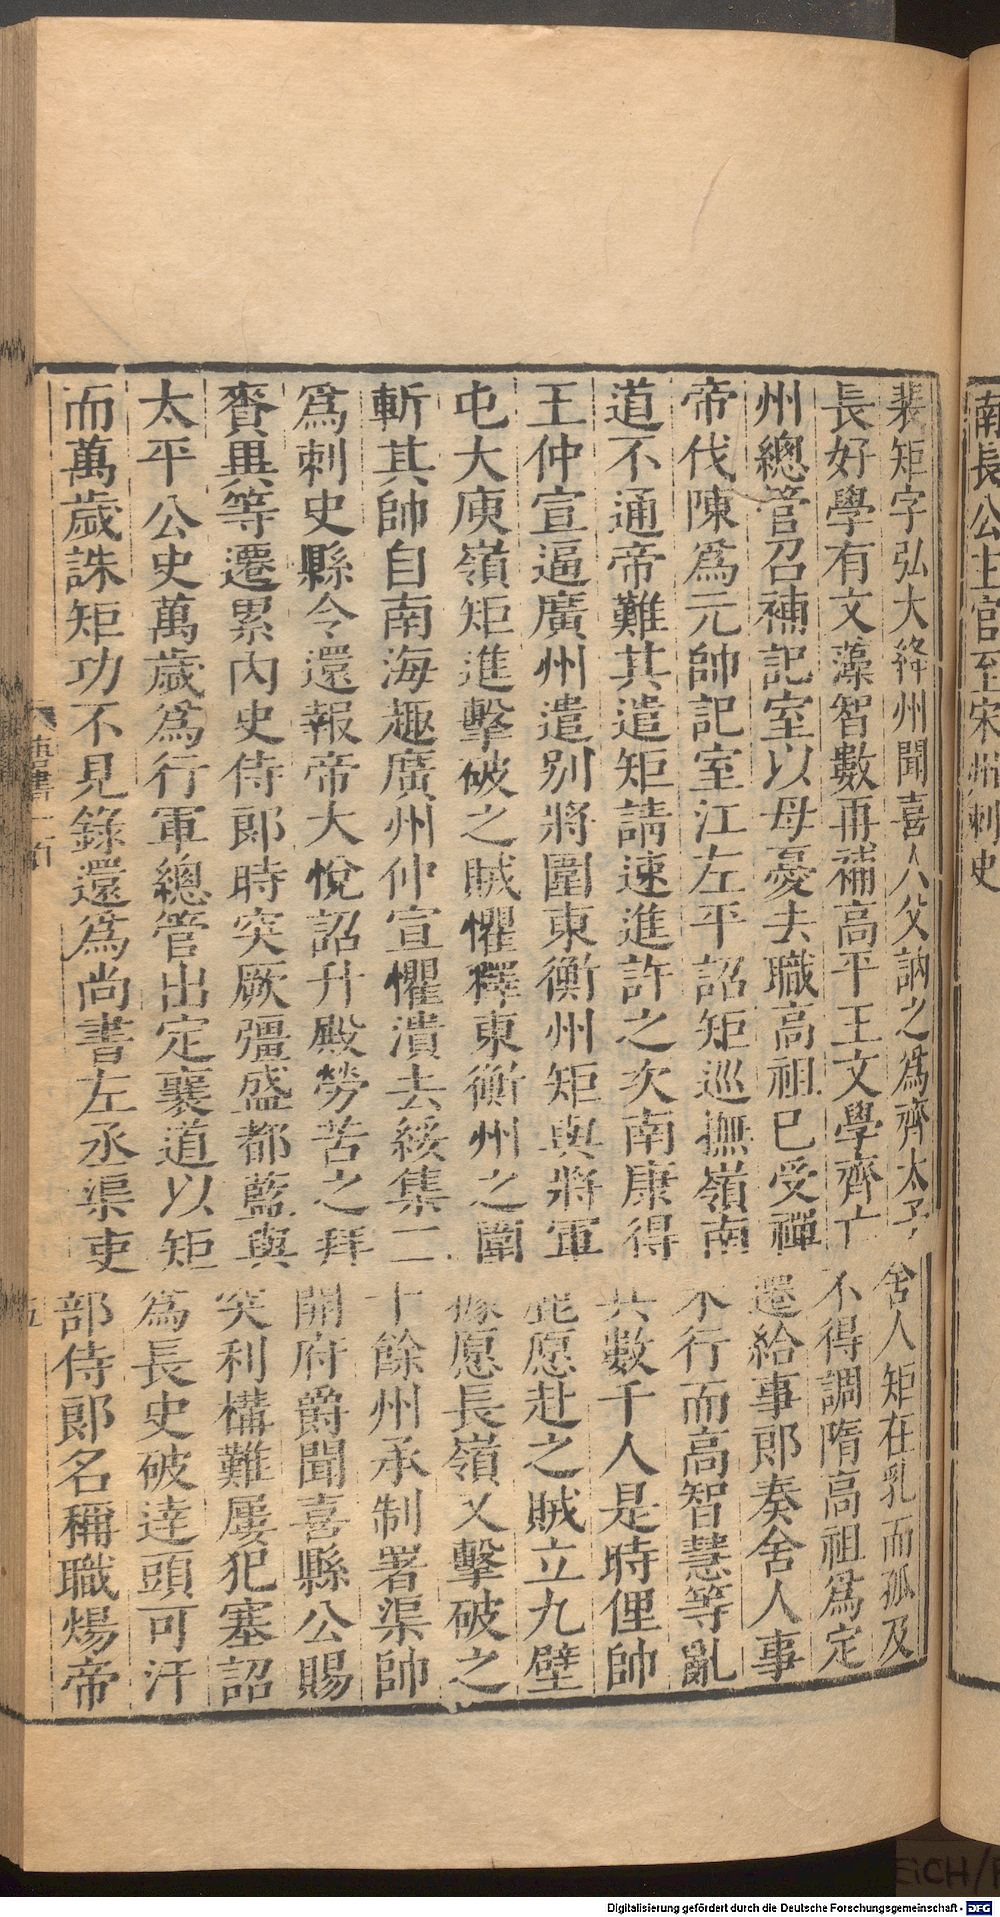 南長公主官至宋州刺史
裴矩字弘大絳州聞喜人父訥之爲齊太子舍人矩在乳而孤及
長好學有文藻智數再補高平王文學齊亡不得調隋高祖爲定
州總管召補記室以母憂去職高祖已受禪遷給事郎奏舍人事
帝伐陳爲元帥記室江左平詔矩巡撫嶺南未行而高智慧等亂
道不通帝難其遣矩請速進許之次南康得兵數千人是時俚帥
王仲宣逼廣州遣别將圍東衡州矩與將軍鹿愿赴之賊立九壁
屯大庾嶺矩進擊破之賊懼釋東衡州之圍據愿長嶺又擊破之
斬其帥自南海趣廣州仲宣懼潰去綏集二十餘州承制署渠帥
爲刺史縣令還報帝大悅詔升殿勞苦之拜開府爵聞喜縣公賜
賚異等遷累內史侍郎時突厥彊盛都藍與突利構難屢犯塞詔
太平公史萬歲爲行軍總管出定襄道以矩爲長史破達頭可汗
而萬歲誅矩功不見錄還爲尚書左丞渠吏部侍郎名稱職煬帝
唐書一百
五
EICH/
Digitalisierung gefördert durch die Deutsche Forschungsgemeinschaft - DFG